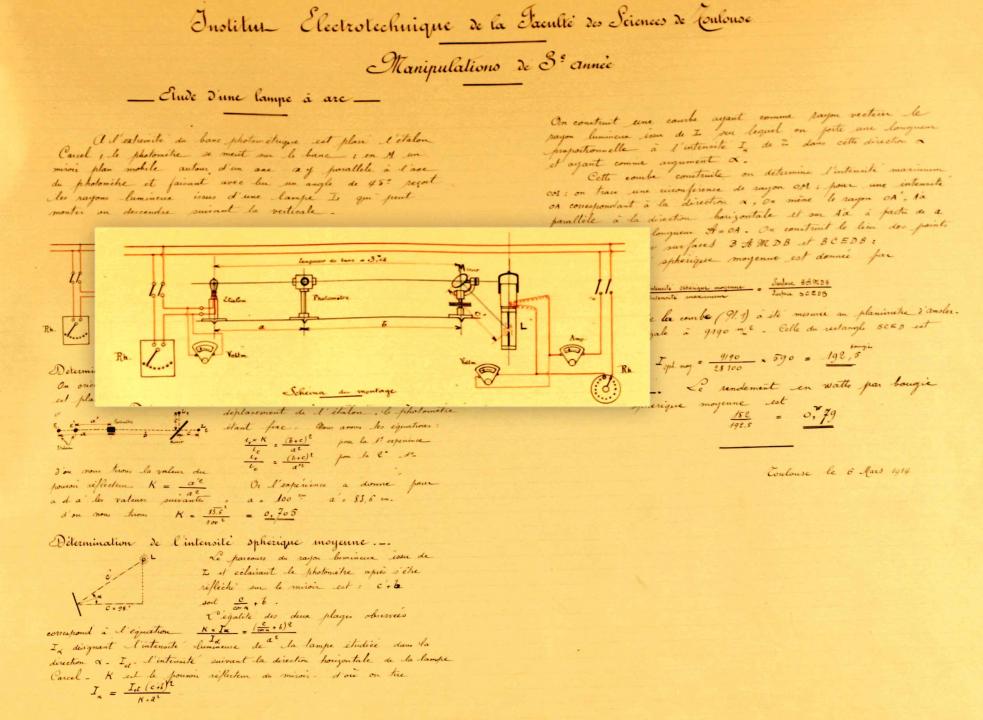 Institut Electrotechnique de la Faculté des Sciences de Toulouse
Manipulations de 3e année
Etude d'une lampe à arc
A l'extrémité du banc photométrique est placé l'étalon
Carcel ; le photomètre se meut sur le banc ; en M un
miroir plan mobile autour d'un axe xy parallèle à l'axe
du photomètre et faisant avec lui un angle de 45° reçoit
les rayons lumineux issus d'une lampe L qui peut
monter ou descendre suivant la verticale.
Rh.
longueur du banc =
Etalon
Photomètre
Miroir
a
b
C
L
Rh.
Voltm
Voltm
Amp.
Rh.
Schéma du montage
Determi
On
est pla
déplacement de l'étalon, le photomètre
étant fixe. Nous avons les équations :
= (b+c)² / a²
pour la 1e expérience
= (b+c)² / a'²
pour la 2e
d'où nous tirons la valeur du
pouvoir réflecteur K = a'² / a²
Or l'expérience a donné pour
a et a' les valeurs suivantes : a = 100 a' = 83,6 cm.
d'où nous tirons K = / 100² = 0,705
Détermination de l'intensité sphérique moyenne
L
c'
α
C = 98
Le parcours du rayon lumineux issu de
L et éclairant le photomètre après s'être
réfléchi sur le miroir est : c'+b
soit c / cos α + b.
L'égalité des deux plages observées
correspond à l'équation K × Iα / = (c / cos α + b)² / a²
Iα désignant l'intensité lumineuse de la lampe étudiée dans la
direction α. l'intensité suivant la direction horizontale de la lampe
Carcel. K est le pouvoir réflecteur du miroir. d'où on tire
Iα = (c'+b)² / K × a²
On construit une courbe ayant comme rayon vecteur le
rayon lumineux issu de L sur lequel on porte une longueur
proportionnelle à l'intensité Iα de dans cette direction α
et ayant comme argument α.
Cette courbe construite on détermine l'intensité maximum
OM : on trace une circonférence de rayon OM ; pour une intensité
OA correspondant à la direction α, on mène le rayon OA'. Aa
parallèle à la direction horizontale et sur Aa à partir de a
longueur = OA. On construit le lieu des points
surfaces BAMDB et BCEDB :
sphérique moyenne est donnée par
intensité sphérique moyenne / intensité maximum = Surface BAMDB / Surface BCEDB
la courbe (Pl. 1) a été mesurée au planimètre d'Amsler.
égale à 9190 m². Celle du rectangle BCED est
I sph moy = 9190 / 28100 × 590 = 192,5 bougies
Le rendement en watts par bougie
sphérique moyenne est
152 / 192.5 = 0,79
Toulouse le 6 Mars 1914